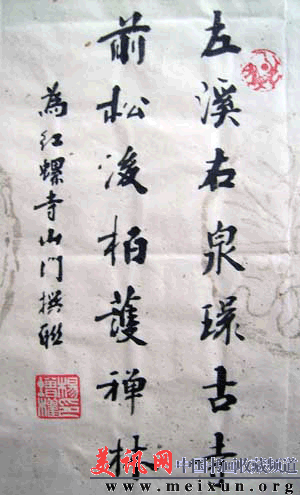 左溪右泉環古寺
前松後柏護禅林
為红螺寺山门撰联
美讯网 中国书画收藏频道
www.meixun.org